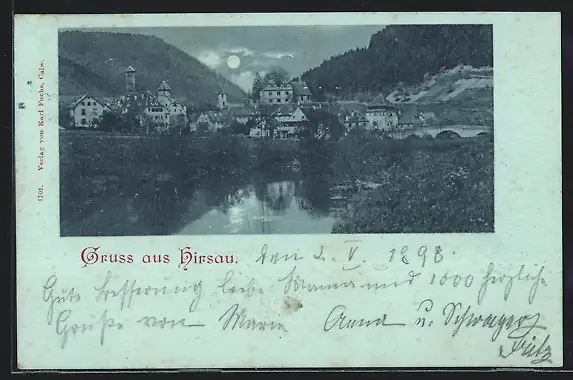 1701. Verlag von Karl Fuchs, Calw.
Gruss aus Hirsau. den 2. V. 1898.
Gute Besserung liebe Mama und 1000 herzliche
Grüße von Marie Anna u. Schwager
Fritz